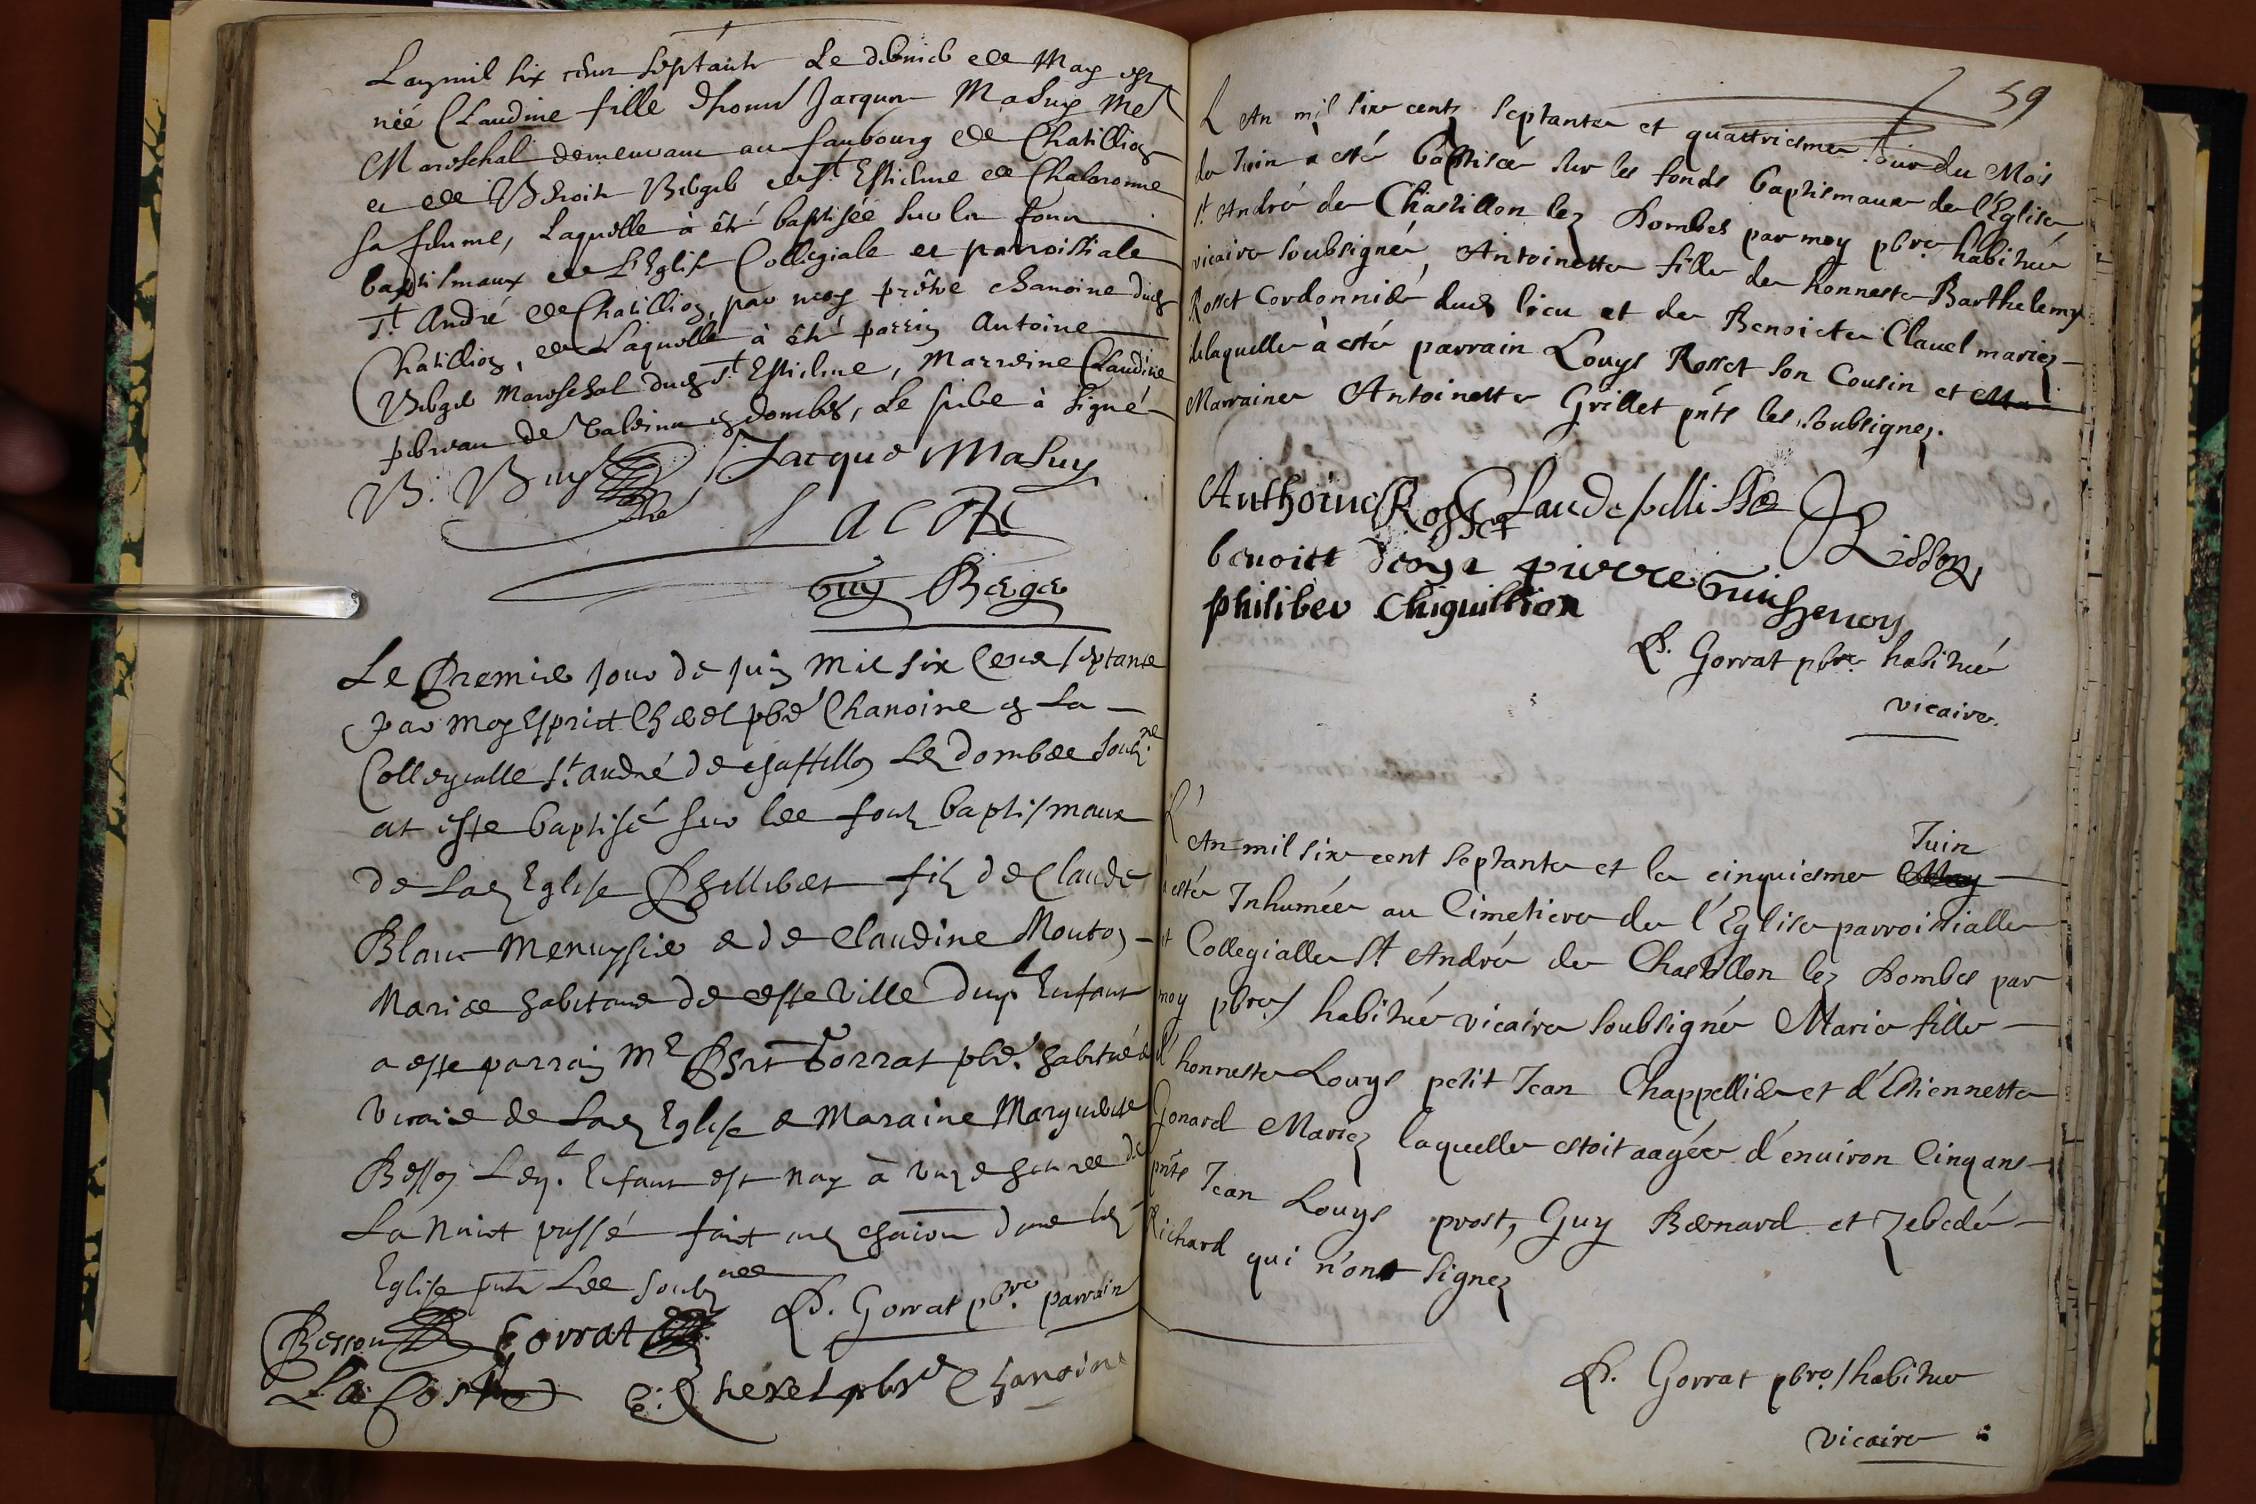 L'an mil six cent septante Le dernier de May est
née Claudine fille d'honne Jacques Masuy Me
Mareschal demeurant au faubourg de Chatillion
et de Benoite Berger de St Estienne de Chalaronne
sa femme, Laquelle à été baptisée sur les fonts
baptismaux de L'Eglise Collegiale et parroissiale
St André de Chatillion, par moy prêtre chanoine dudt
Chatillion, de Laquelle à été parrin Antoine
Berger Mareschal dudt St Estienne, Marreine Claudine
de dombes, Le pere à signé
B. Buy Jacque Masuy
LACOTE
Guy Berger
Le Premier jour de juin Mil six Cens septante
par moy Esprit Cheret pbre Chanoine en La
Collegialle St André de Chastillon Les dombes soubne
at este baptisé sur les fonts baptismaux
de lad Eglise Phillibert fils de Claude
Blanc Menuysier & de Claudine Mouton
Mariés habitans de ceste Ville duql Enfant
a este parrain Mr Phit Gorrat pbre habitué &
Vicaire de Lad Eglise & Maraine Marguerite
Besson Led. Enfant est nay à heures de
La Nuict passé fait aud chatillon dans lad
Eglise pnts Les soubnes
Besson Gorrat P. Gorrat pbre parrain
La Coste E. Cheret pbre Chanoine
59
L'An mil six cents septante et quattriesme Jour du Mois
de Juin a esté baptisée sur les fonds baptismaux de l'Eglise
st André de Chastillon lez Dombes par moy pbre habitué
vicaire soubsigné, Antoinette fille de honneste Barthelemy
Rosset Cordonnier dud lieu et de Benoicte Clauel mariez
de laquelle à esté parrain Louys Rosset son Cousin et
Marraine Antoinette Grillet pnts les soubsignez.
Anthoine Rosset Claude pellisse
benoict pierre
philiber Chiquillion
P. Gorrat pbre habitué
vicaire.
L'An mil six cent septante et le cinquiesme Juin
à esté Inhumée au Cimetiere de l'Eglise parroissialle
et Collegialle St André de Chastillon lez Dombes par
moy pbre habitué vicaire soubsigné Marie fille
d'honneste Louys petit Jean Chappellier et d'Estiennette
Gonard Mariez laquelle estoit aagée d'enuiron Cinq ans
pnts Jean Louys prost, Guy Bernard et Zebedé
Richard qui n'ont signez
P. Gorrat pbre habitué
vicaire